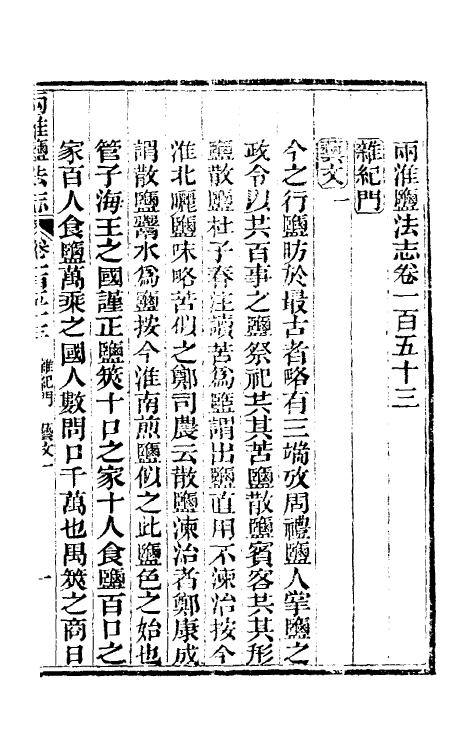 兩淮鹽法志卷一百五十三
雜紀門
藝文一
今之行鹽昉於最古者略有三端攷周禮鹽人掌鹽之
政令以共百事之鹽祭祀共其苦鹽散鹽賓客共其形
鹽散鹽杜子春注讀苦爲鹽謂出鹽直用不湅治按今
淮北曬鹽味略苦似之鄭司農云散鹽湅治者鄭康成
謂散鹽鬻水爲鹽按今淮南煎鹽似之此鹽色之始也
管子海王之國謹正鹽筴十口之家十人食鹽百口之
家百人食鹽萬乘之國人數問口千萬也禺筴之商日
兩淮鹽法志 卷一百五十三 雜紀門 藝文一 一